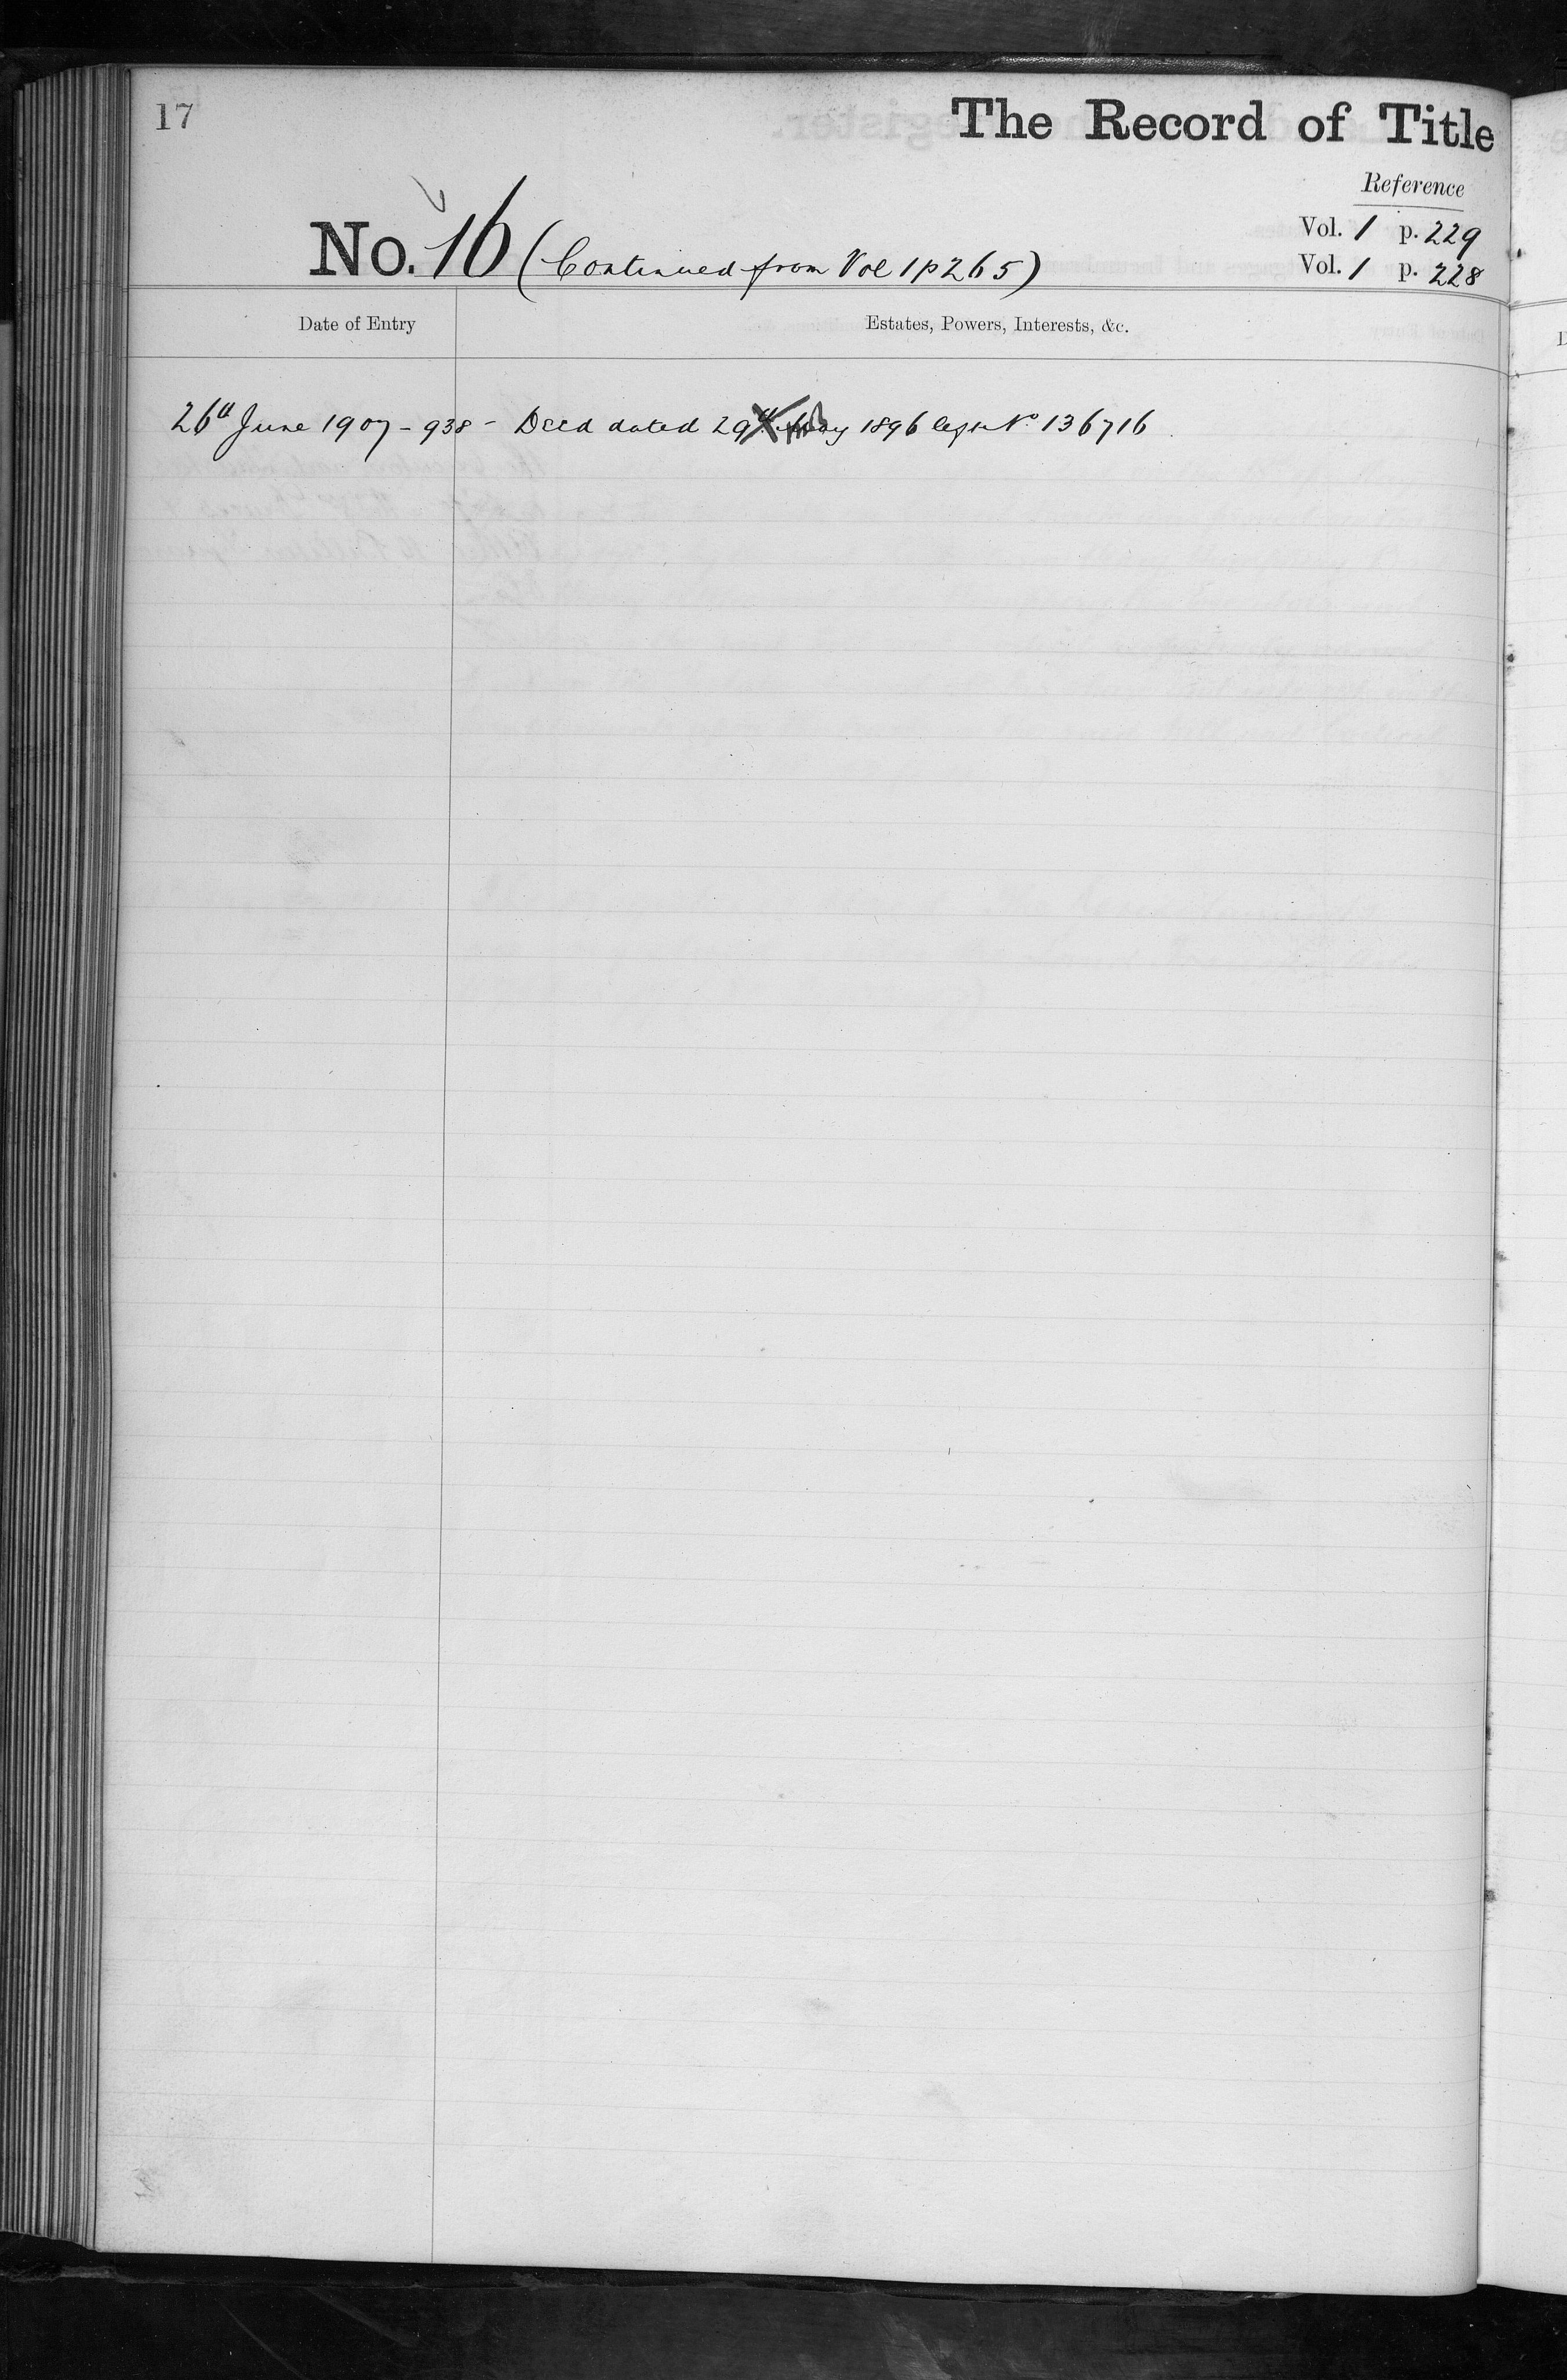 17
The Record of Title
Reference
Vol. 1 p. 229
No. 16 (Continued from Vol 1 p 265)
Vol. 1 p. 228
Date of Entry
Estates, Powers, Interests, &c.
26th June 1907 - 938 - Deed dated 29th May 1896 No 136716